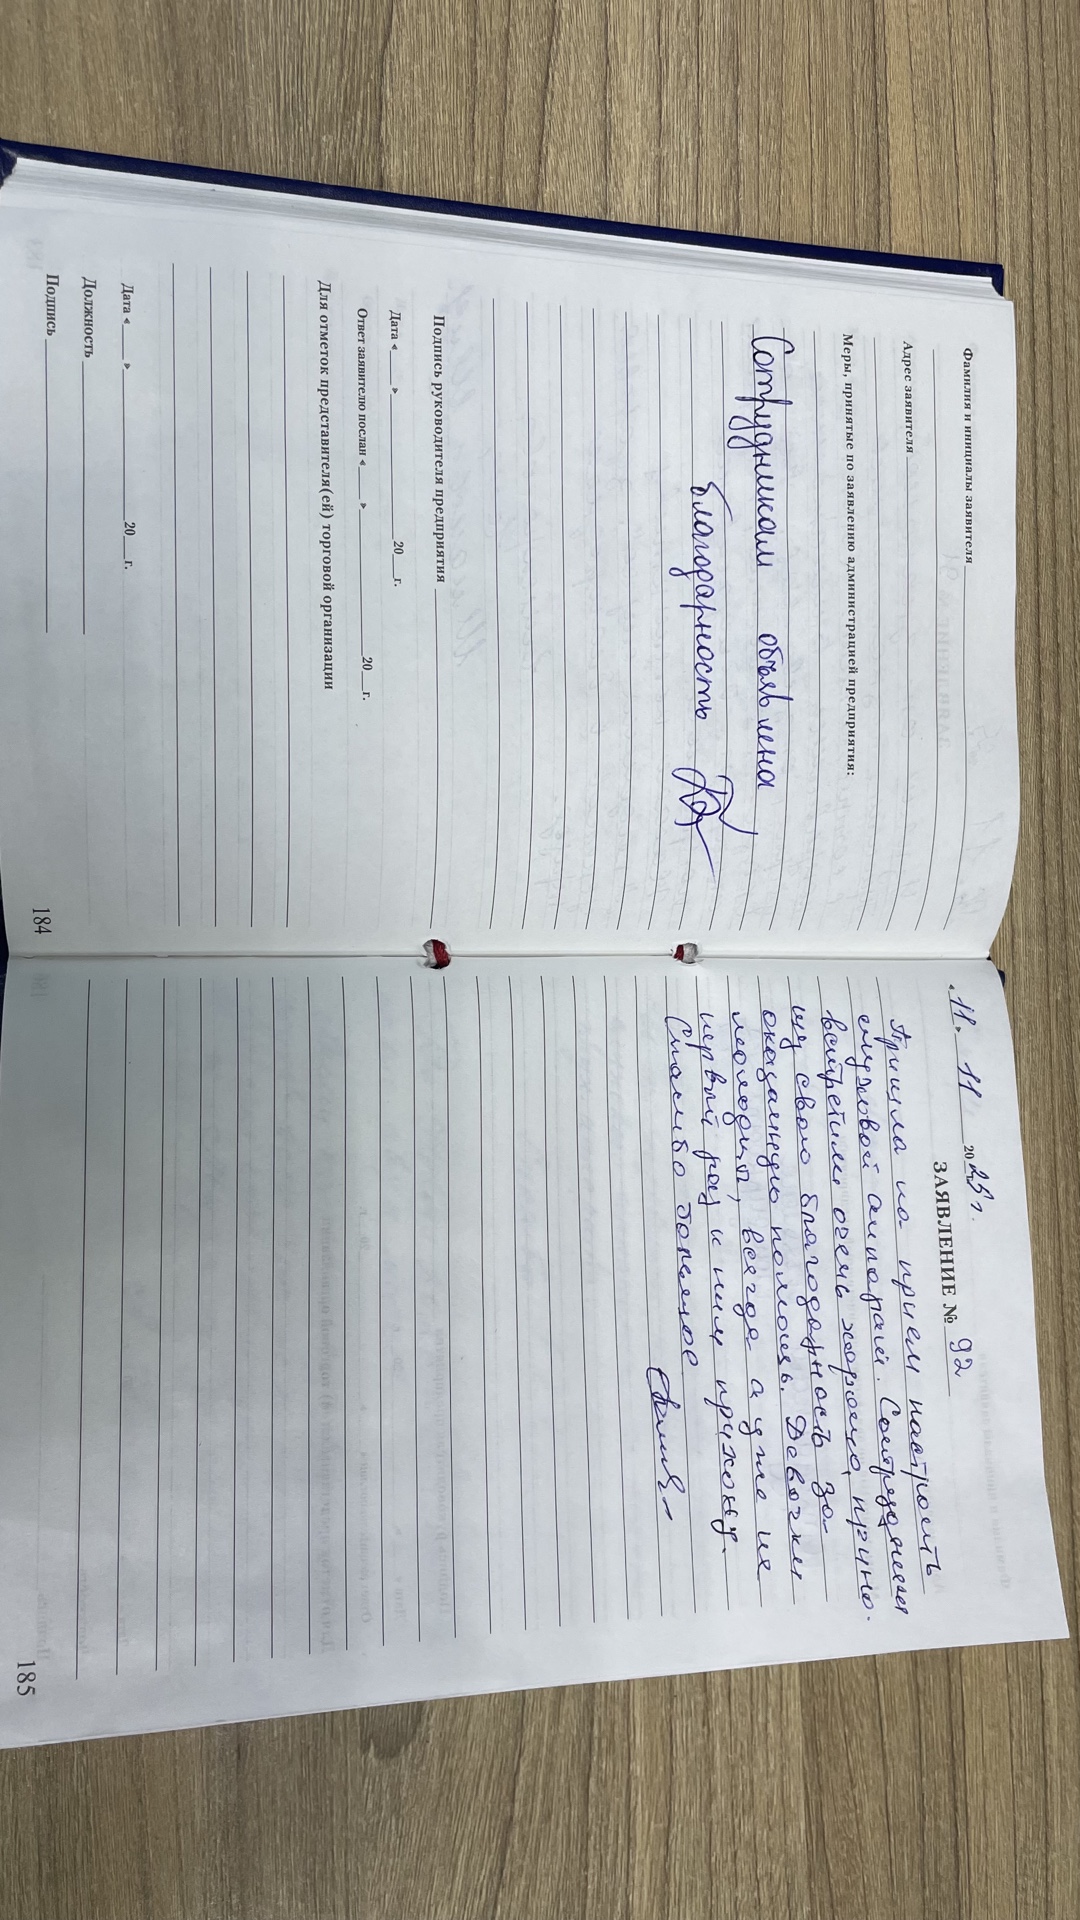 Фамилия и инициалы заявителя
Адрес заявителя
Меры, принятые по заявлению администрацией предприятия:
Сотрудникам объявлена
благодарность
Подпись руководителя предприятия
Дата « » 20 г.
Ответ заявителю послан « » 20 г.
Для отметок представителя(ей) торговой организации
Дата « » 20 г.
Должность
Подпись
184
«11. 11 2025г.
ЗАЯВЛЕНИЕ № 92
Пришла на прием настроить
слуховой аппарат. Сотрудники
встретили очень хорошо, прино-
шу свою благодарность за
оказанную помощь. Девочки
молодцы, всегда а уже не
первый раз к ним прихожу.
Спасибо большое
185